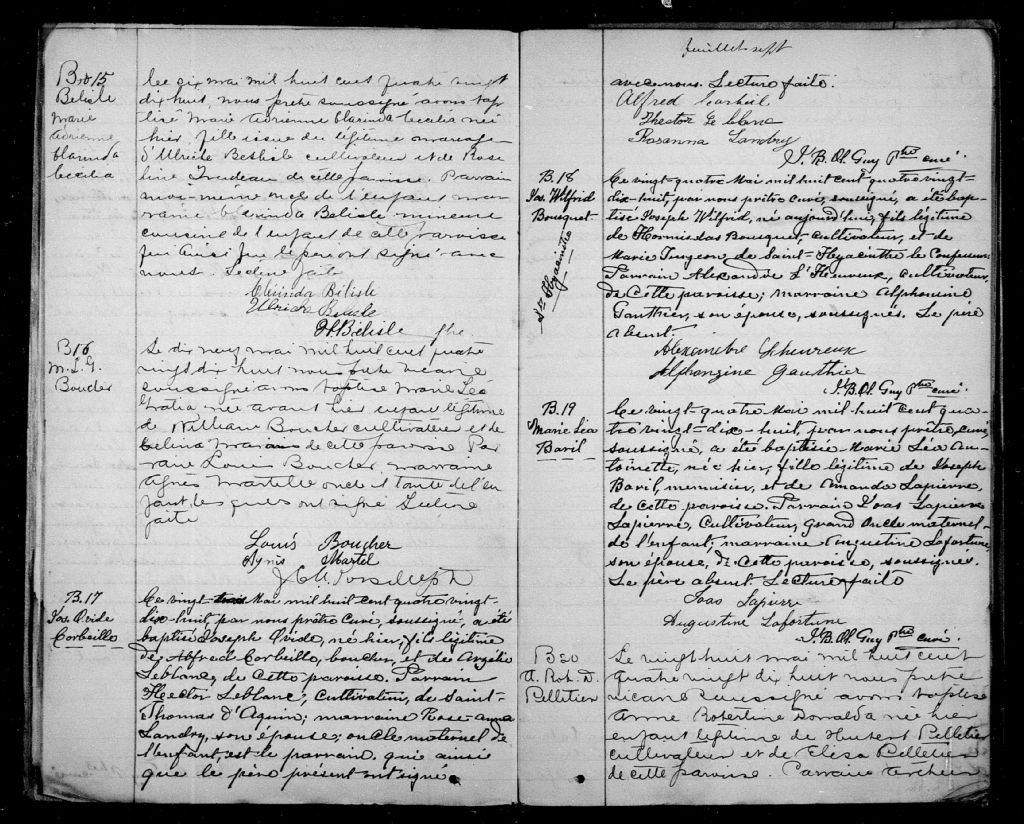 B 15
Belisle
Marie
Adrienne
Clarinda
Cecilia
Le six mai mil huit cent quatre vingt
dix huit, nous prêtre soussigné avons bap
tisé Marie Adrienne Clarinda Cecilia née
hier fille issue du légitime mariage
d'Ulrich Belisle cultivateur et de Rose
Trudeau de cette paroisse. Parrain
moi-même oncle de l'enfant mar
raine Clarinda Belisle mineure
cousine de l'enfant de cette paroisse
qui ainsi que le père ont signé avec
nous. Lecture faite
Clérinda Bélisle
Ulrich Belisle
H. Bélisle ptre
B16
M. L. G.
Boucher
Le dix neuf mai mil huit cent quatre
vingt dix huit nous prêtre vicaire
soussigné avons baptisé Marie Léa
Gratia née avant hier enfant légitime
de William Boucher cultivateur et de
Celina Marais de cette paroisse Par
rain Louis Boucher, marraine
Agnes Martelle oncle et tante de l'en
fant lesquels ont signé Lecture
faite
Louis Boucher
Agnès Martel
B. 17
Jos. Ovide
Corbeille
Ce vingt- Mai mil huit cent quatre vingt-
dix-huit, par nous prêtre Curé, soussigné, a été
baptisé Joseph Ovide, né hier, fils légitime
de Alfred Corbeille, boucher, et de Anzélie
Leblanc, de cette paroisse. Parrain
Hector Leblanc, Cultivateur, de Saint-
Thomas d'Aquin; marraine Rose-anna
Landry, son épouse; oncle maternel de
l'enfant, est le parrain. qui ainsi
que le père présent ont signé
Feuillet sept
avec nous. Lecture faite.
Alfred Corbeil
Hector Le blanc
Rosanna Landry
J. B. Ol. Guy Ptre curé.
B. 18
Jos. Wilfrid
Bousquet
St Hyacinthe
Ce vingt-quatre Mai mil huit cent quatre vingt-
dix-huit, par nous prêtre curé, soussigné, a été bap-
tisé Joseph Wilfrid, né aujourd'hui, fils légitime
de Hormisdas Bousquet, Cultivateur, et de
Marie Turgeon de Saint-Hyacinthe le Confesseur
Parrain Alexandre L'Heureux, Cultivateur,
de cette paroisse; marraine Alphonsine
Gauthier, son épouse, soussignés. Le père
absent.
Alexandre Lheureux
Alphonzine Gauthier
J. B. Ol. Guy Ptre curé.
B. 19
Marie Léa
Baril
Ce vingt-quatre Mai mil huit cent qua-
tre vingt-dix-huit, par nous prêtre, curé
soussigné, a été baptisée Marie Léa An-
toinette, née hier, fille légitime de Joseph
Baril, menuisier, et de Amanda Lapierre,
de cette paroisse. Parrain Isaas Lapierre
Lapierre, Cultivateur, Grand Oncle maternel-
de l'enfant; marraine Augustine Lafortune,
son épouse, de cette paroisse, soussignés.
Le père absent. Lecture faite
Isaas Lapierre
Augustine Lafortune
J. B. Ol. Guy Ptre curé.
B 20
A. Rob. D.
Pelletier
Le vingt huit mai mil huit cent
quatre vingt dix huit nous prêtre
vicaire soussigné avons baptisé
Anne Robertine Donalda née hier
enfant légitime de Hubert Pelletier
cultivateur et de Eliza Pelletier
de cette paroisse. Parrain